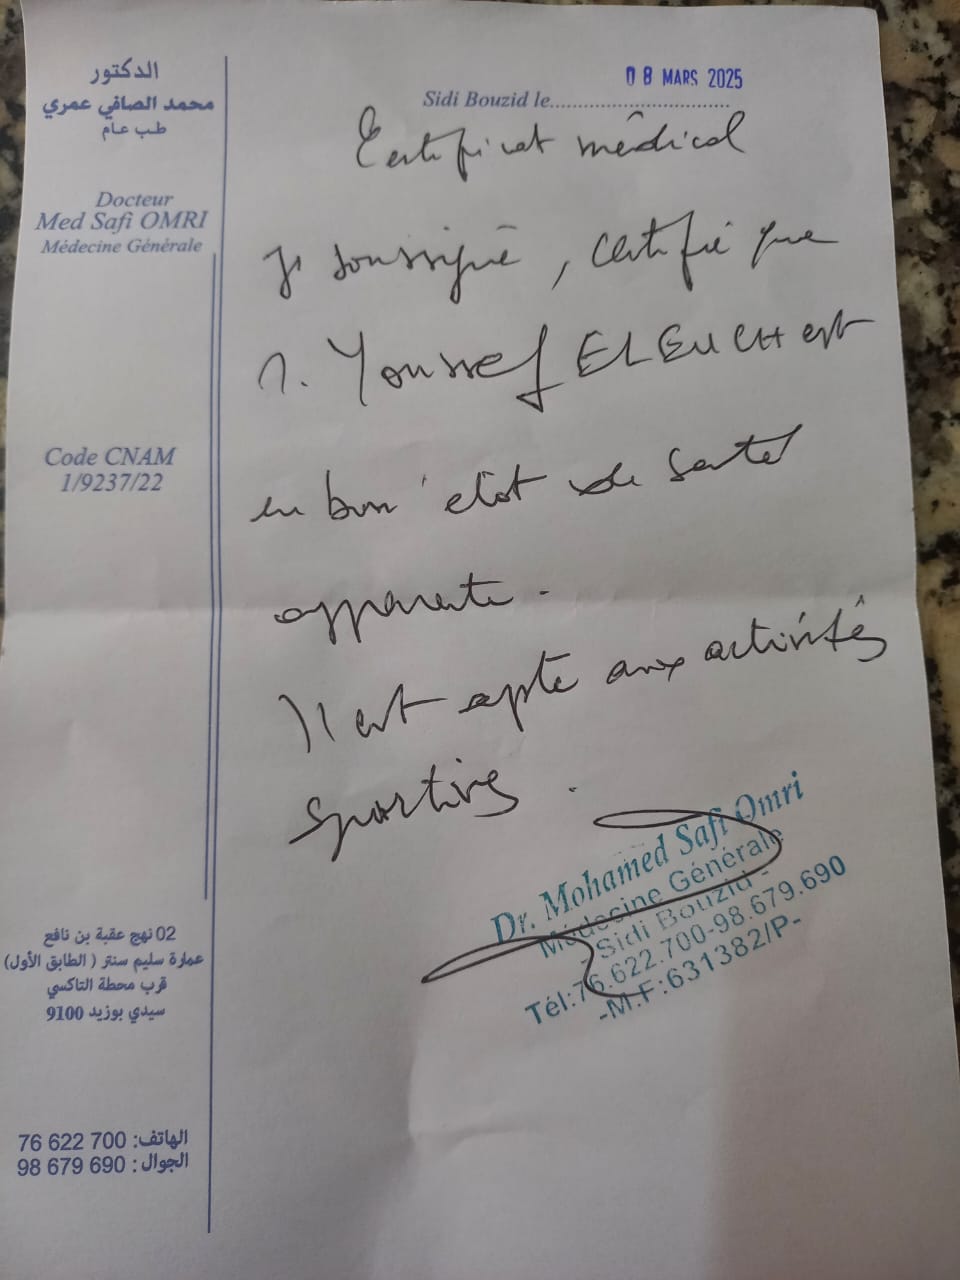 الدكتور
محمد الصافي عمري
طب عام
Docteur
Med Safi OMRI
Médecine Générale
Code CNAM
1/9237/22
02 نهج عقبة بن نافع
عمارة سليم سنتر ( الطابق الأول)
قرب محطة التاكسي
سيدي بوزيد 9100
الهاتف: 76 622 700
الجوال : 98 679 690
08 MARS 2025
Sidi Bouzid le
Certificat médical
Je soussigné, certifie que
M. Youssef ELEUCH est
en bon état de santé
apparente.
Il est apte aux activités
sportives.
Dr. Mohamed Safi Omri
Médecine Générale
- Sidi Bouzid -
Tél:76.622.700-98.679.690
-M.F:631382/P-